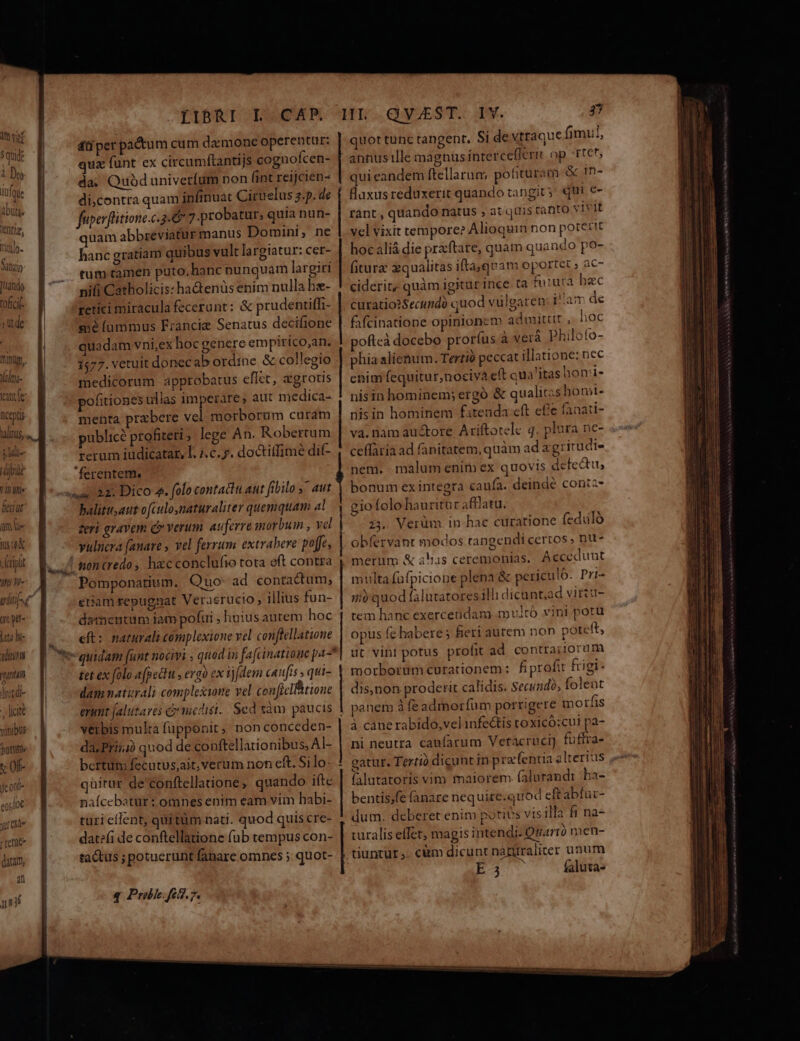 LIBRI I. CAP.
ſti per pactum cum dæmone operentur:
quæ ſunt ex circumſtantijs cognoſcen-
da. Quòd univerſum non ſint reijcien-
di, contra quam inſinuat Ciruelus 3.p. de
ſuperſtitione.c.3.& 7. probatur, quia nun-
quam abbreviatur manus Domini, ne
hanc gratiam quibus vult largiatur: cer-
tum tamen puto, hanc nunquam largiri
niſi Catholicis: hactenùs enim nulla hæ-
retici miracula fecerunt: & prudentiſſi-
mè ſummus Franciæ Senatus deciſione
quadam vni, ex hoc genere empirico, an.
1577. vetuit donec ab ordine & collegio
medicorum approbatus eſſet, ægrotis
poſitiones ullas imperare, aut medica-
menta præbere vel morborum curam
publicè profiteri, lege An. Robertum
rerum iudicatar. l. 1.c.5. doctiſſimè diſ-
ferentem.
22. Dico 4. ſolo contactu aut ſibilo, aut
halitu, aut oſculo, naturaliter quemquam al
teri gravem & verum auferre morbum, vel
vulnera ſanare, vel ferrum extrahere poſſe,
non credo, hæc concluſio tota eſt contra
Pomponatium. Quo ad contactum,
etiam repugnat Veracrucio, illius fun-
damentum iam poſui, huius autem hoc
eſt: naturali complexione vel conſtellatione
quidam ſunt nocivi, quòd in faſcinatione pa-
tet ex ſolo aſpectu, ergò ex ijſdem cauſis, qui-
dam naturali complexione vel conſtellatione
erunt ſalutares & medici. Sed tàm paucis
verbis multa ſupponit, non conceden-
da. Primò quod de conſtellationibus, Al-
bertum ſecutus, ait, verum non eſt. Si lo-
quitur de conſtellatione, quando iſte
naſcebatur: omnes enim eam vim habi-
turi eſſent, qui tùm nati. quod quis cre-
dat? ſi de conſtellatione ſub tempus con-
tactus; potuerunt ſanare omnes; quot-
q Proble. ſect. 7.
III. QVÆST. IV. 37
quot tunc tangent. Si de vtraque ſimul,
annus ille magnus interceſſerit oportet,
qui eandem ſtellarum poſituram & in-
fluxus reduxerit quando tangit; qui e-
rant, quando natus, at quis tanto vivit
vel vixit tempore? Alioquin non poterit
hoc aliâ die præſtare, quam quando po-
ſituræ æqualitas iſta, quam oportet, ac-
ciderit, quàm igitur incerta futura hæc
curatio? Secundò quod vulgarem illam de
faſcinatione opinionem admittit, hoc
poſteà docebo prorſus à verâ Philoſo-
phia alienum. Tertiò peccat illatione: nec
enim ſequitur, nociva eſt qualitas homi-
nis in hominem; ergò & qualitas homi-
nis in hominem fatenda eſt eſſe ſanati-
va. nam auctore Ariſtotele q. plura ne-
ceſſaria ad ſanitatem, quàm ad ægritudi-
nem. malum enim ex quovis defectu,
bonum ex integra cauſa. deindè conta-
gio ſolo hauritur afflatu.
23. Verùm in hac curatione ſedulò
obſervant modos tangendi certos, nu-
merum & alias ceremonias. Accedunt
multa ſuſpicione plena & periculo. Pri-
mò quod ſalutatores illi dicant, ad virtu-
tem hanc exercendam multò vini potu
opus ſe habere; fieri autem non poteſt,
ut vini potus profit ad contrariorum
morborum curationem: ſi profit frigi-
dis, non proderit calidis. Secundò, ſolent
panem à ſe admorſum porrigere morſis
à cane rabido, vel infectis toxicò: cui pa-
ni neutra cauſarum Veracrucij ſuffra-
gatur. Tertiò dicunt in præſentia alterius
ſalutatoris vim maiorem ſalutandi ha-
bentis, ſe ſanare nequire. quod eſt abſur-
dum. deberet enim potius vis illa ſi na-
turalis eſſet, magis intendi. Quartò men-
tiuntur, cùm dicunt naturaliter unum
E 3 ſaluta-